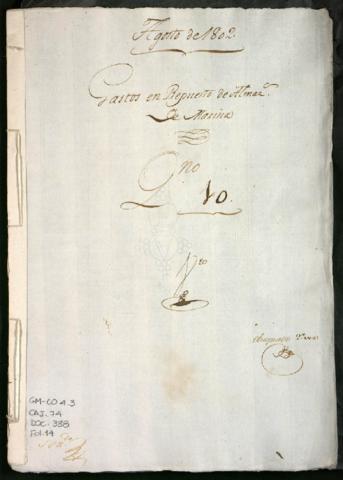 Agosto de 1802.
Gastos en Repuesto de Almaz.^s
De Marina
Q.^no
10.
N.^ro
8
GM-CO 4.3
CAJ. 74
DOC. 338
Fol. 14